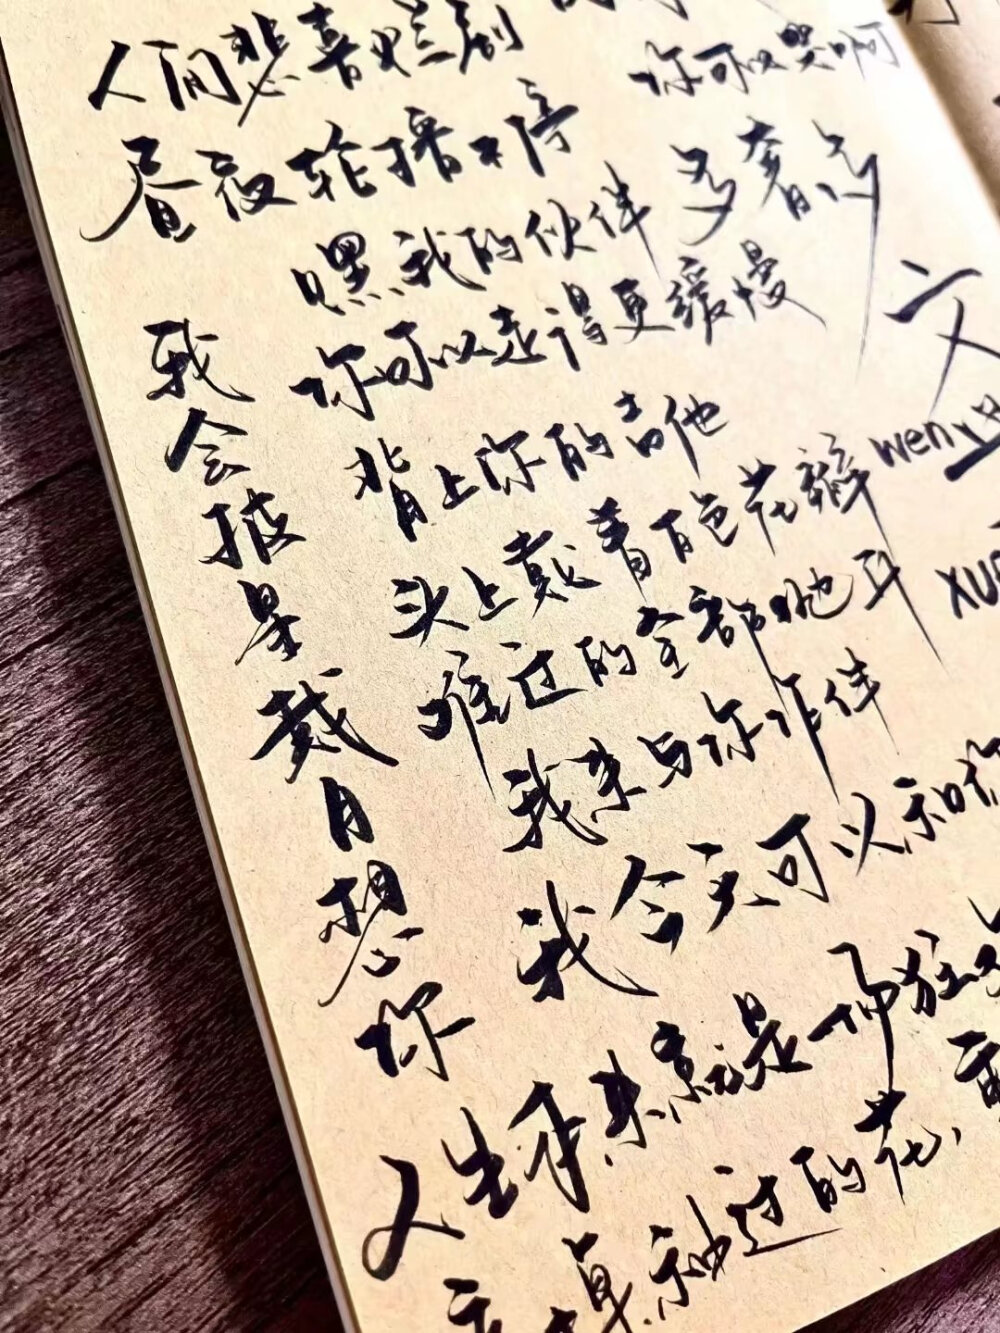 人间悲喜烂剧
你可以哭啊
昼夜轮播不停
嘿我的伙伴 多奢多
你可以走得更缓慢
背上你的吉他
头上戴着百色花瓣
wen
难过的全部吔耳
我来与你作伴
我今天可以和你
我会披星戴月想你
人生本来就是一场
的花、